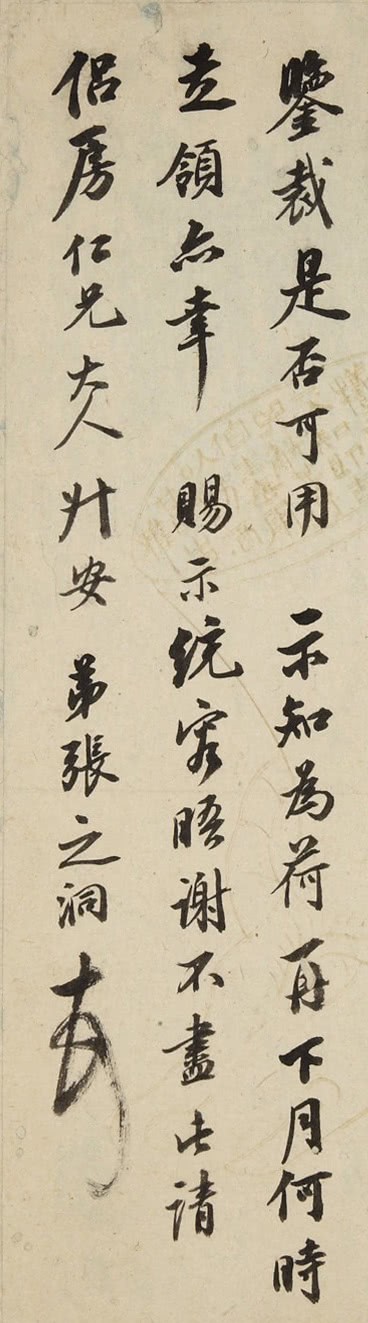 鑒裁是否可用 示知為荷再下月何時
走領亦幸 賜示統容晤謝不盡此請
侶房仁兄大人升安 弟張之洞